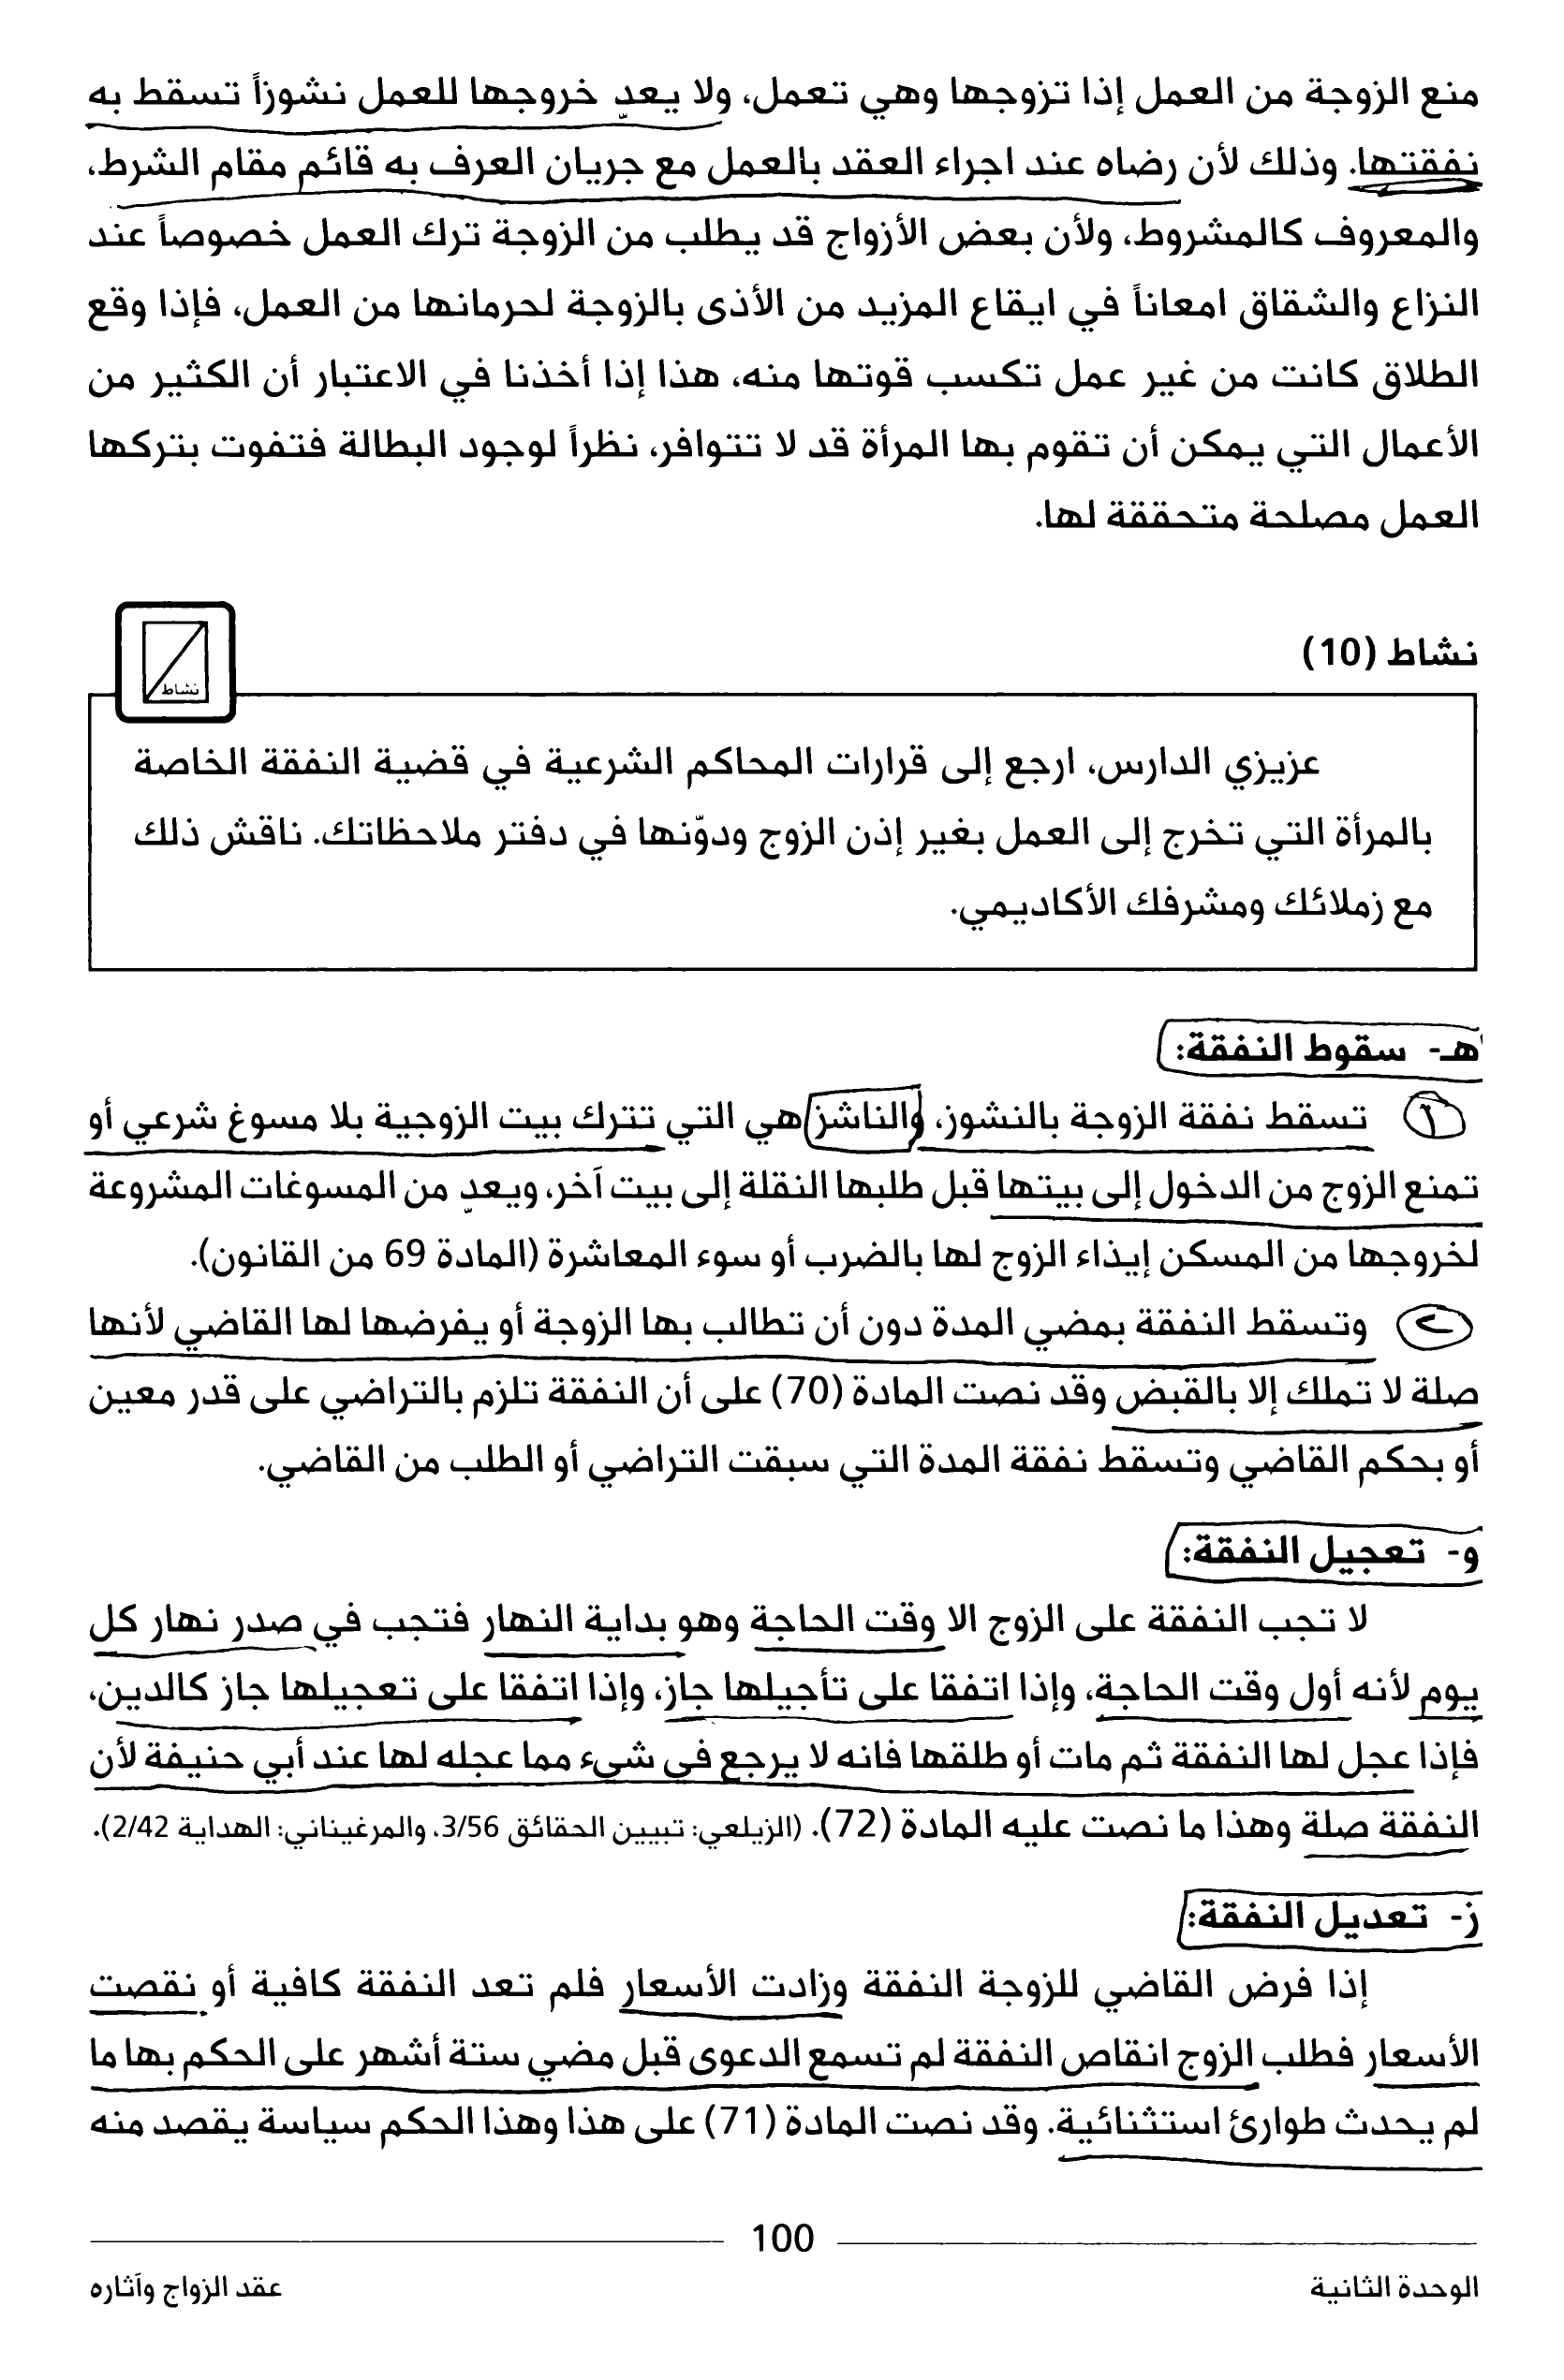 منع الزوجة من العمل إذا تزوجها وهي تعمل، ولا يعدّ خروجها للعمل نشوزاً تسقط به
نفقتها. وذلك لأن رضاه عند اجراء العقد بالعمل مع جريان العرف به قائم مقام الشرط،
والمعروف كالمشروط، ولأن بعض الأزواج قد يطلب من الزوجة ترك العمل خصوصاً عند
النزاع والشقاق امعاناً في ايقاع المزيد من الأذى بالزوجة لحرمانها من العمل، فإذا وقع
الطلاق كانت من غير عمل تكسب قوتها منه، هذا إذا أخذنا في الاعتبار أن الكثير من
الأعمال التي يمكن أن تقوم بها المرأة قد لا تتوافر، نظراً لوجود البطالة فتفوت بتركها
العمل مصلحة متحققة لها.
نشاط (10)
نشاط
عزيزي الدارس، ارجع إلى قرارات المحاكم الشرعية في قضية النفقة الخاصة
بالمرأة التي تخرج إلى العمل بغير إذن الزوج ودوّنها في دفتر ملاحظاتك. ناقش ذلك
مع زملائك ومشرفك الأكاديمي.
هـ- سقوط النفقة:
١ تسقط نفقة الزوجة بالنشوز، والناشز هي التي تترك بيت الزوجية بلا مسوغ شرعي أو
تمنع الزوج من الدخول إلى بيتها قبل طلبها النقلة إلى بيت آخر، ويعدّ من المسوغات المشروعة
لخروجها من المسكن إيذاء الزوج لها بالضرب أو سوء المعاشرة (المادة 69 من القانون).
٢ وتسقط النفقة بمضي المدة دون أن تطالب بها الزوجة أو يفرضها لها القاضي لأنها
صلة لا تملك إلا بالقبض وقد نصت المادة (70) على أن النفقة تلزم بالتراضي على قدر معين
أو بحكم القاضي وتسقط نفقة المدة التي سبقت التراضي أو الطلب من القاضي.
و- تعجيل النفقة:
لا تجب النفقة على الزوج الا وقت الحاجة وهو بداية النهار فتجب في صدر نهار كل
يوم لأنه أول وقت الحاجة، وإذا اتفقا على تأجيلها جاز، وإذا اتفقا على تعجيلها جاز كالدين،
فإذا عجل لها النفقة ثم مات أو طلقها فانه لا يرجع في شيء مما عجله لها عند أبي حنيفة لأن
النفقة صلة وهذا ما نصت عليه المادة (72). (الزيلعي: تبيين الحقائق 3/56، والمرغيناني: الهداية 2/42).
ز- تعديل النفقة:
إذا فرض القاضي للزوجة النفقة وزادت الأسعار فلم تعد النفقة كافية أو نقصت
الأسعار فطلب الزوج انقاص النفقة لم تسمع الدعوى قبل مضي ستة أشهر على الحكم بها ما
لم يحدث طوارئ استثنائية. وقد نصت المادة (71) على هذا وهذا الحكم سياسة يقصد منه
100
الوحدة الثانية
عقد الزواج وآثاره